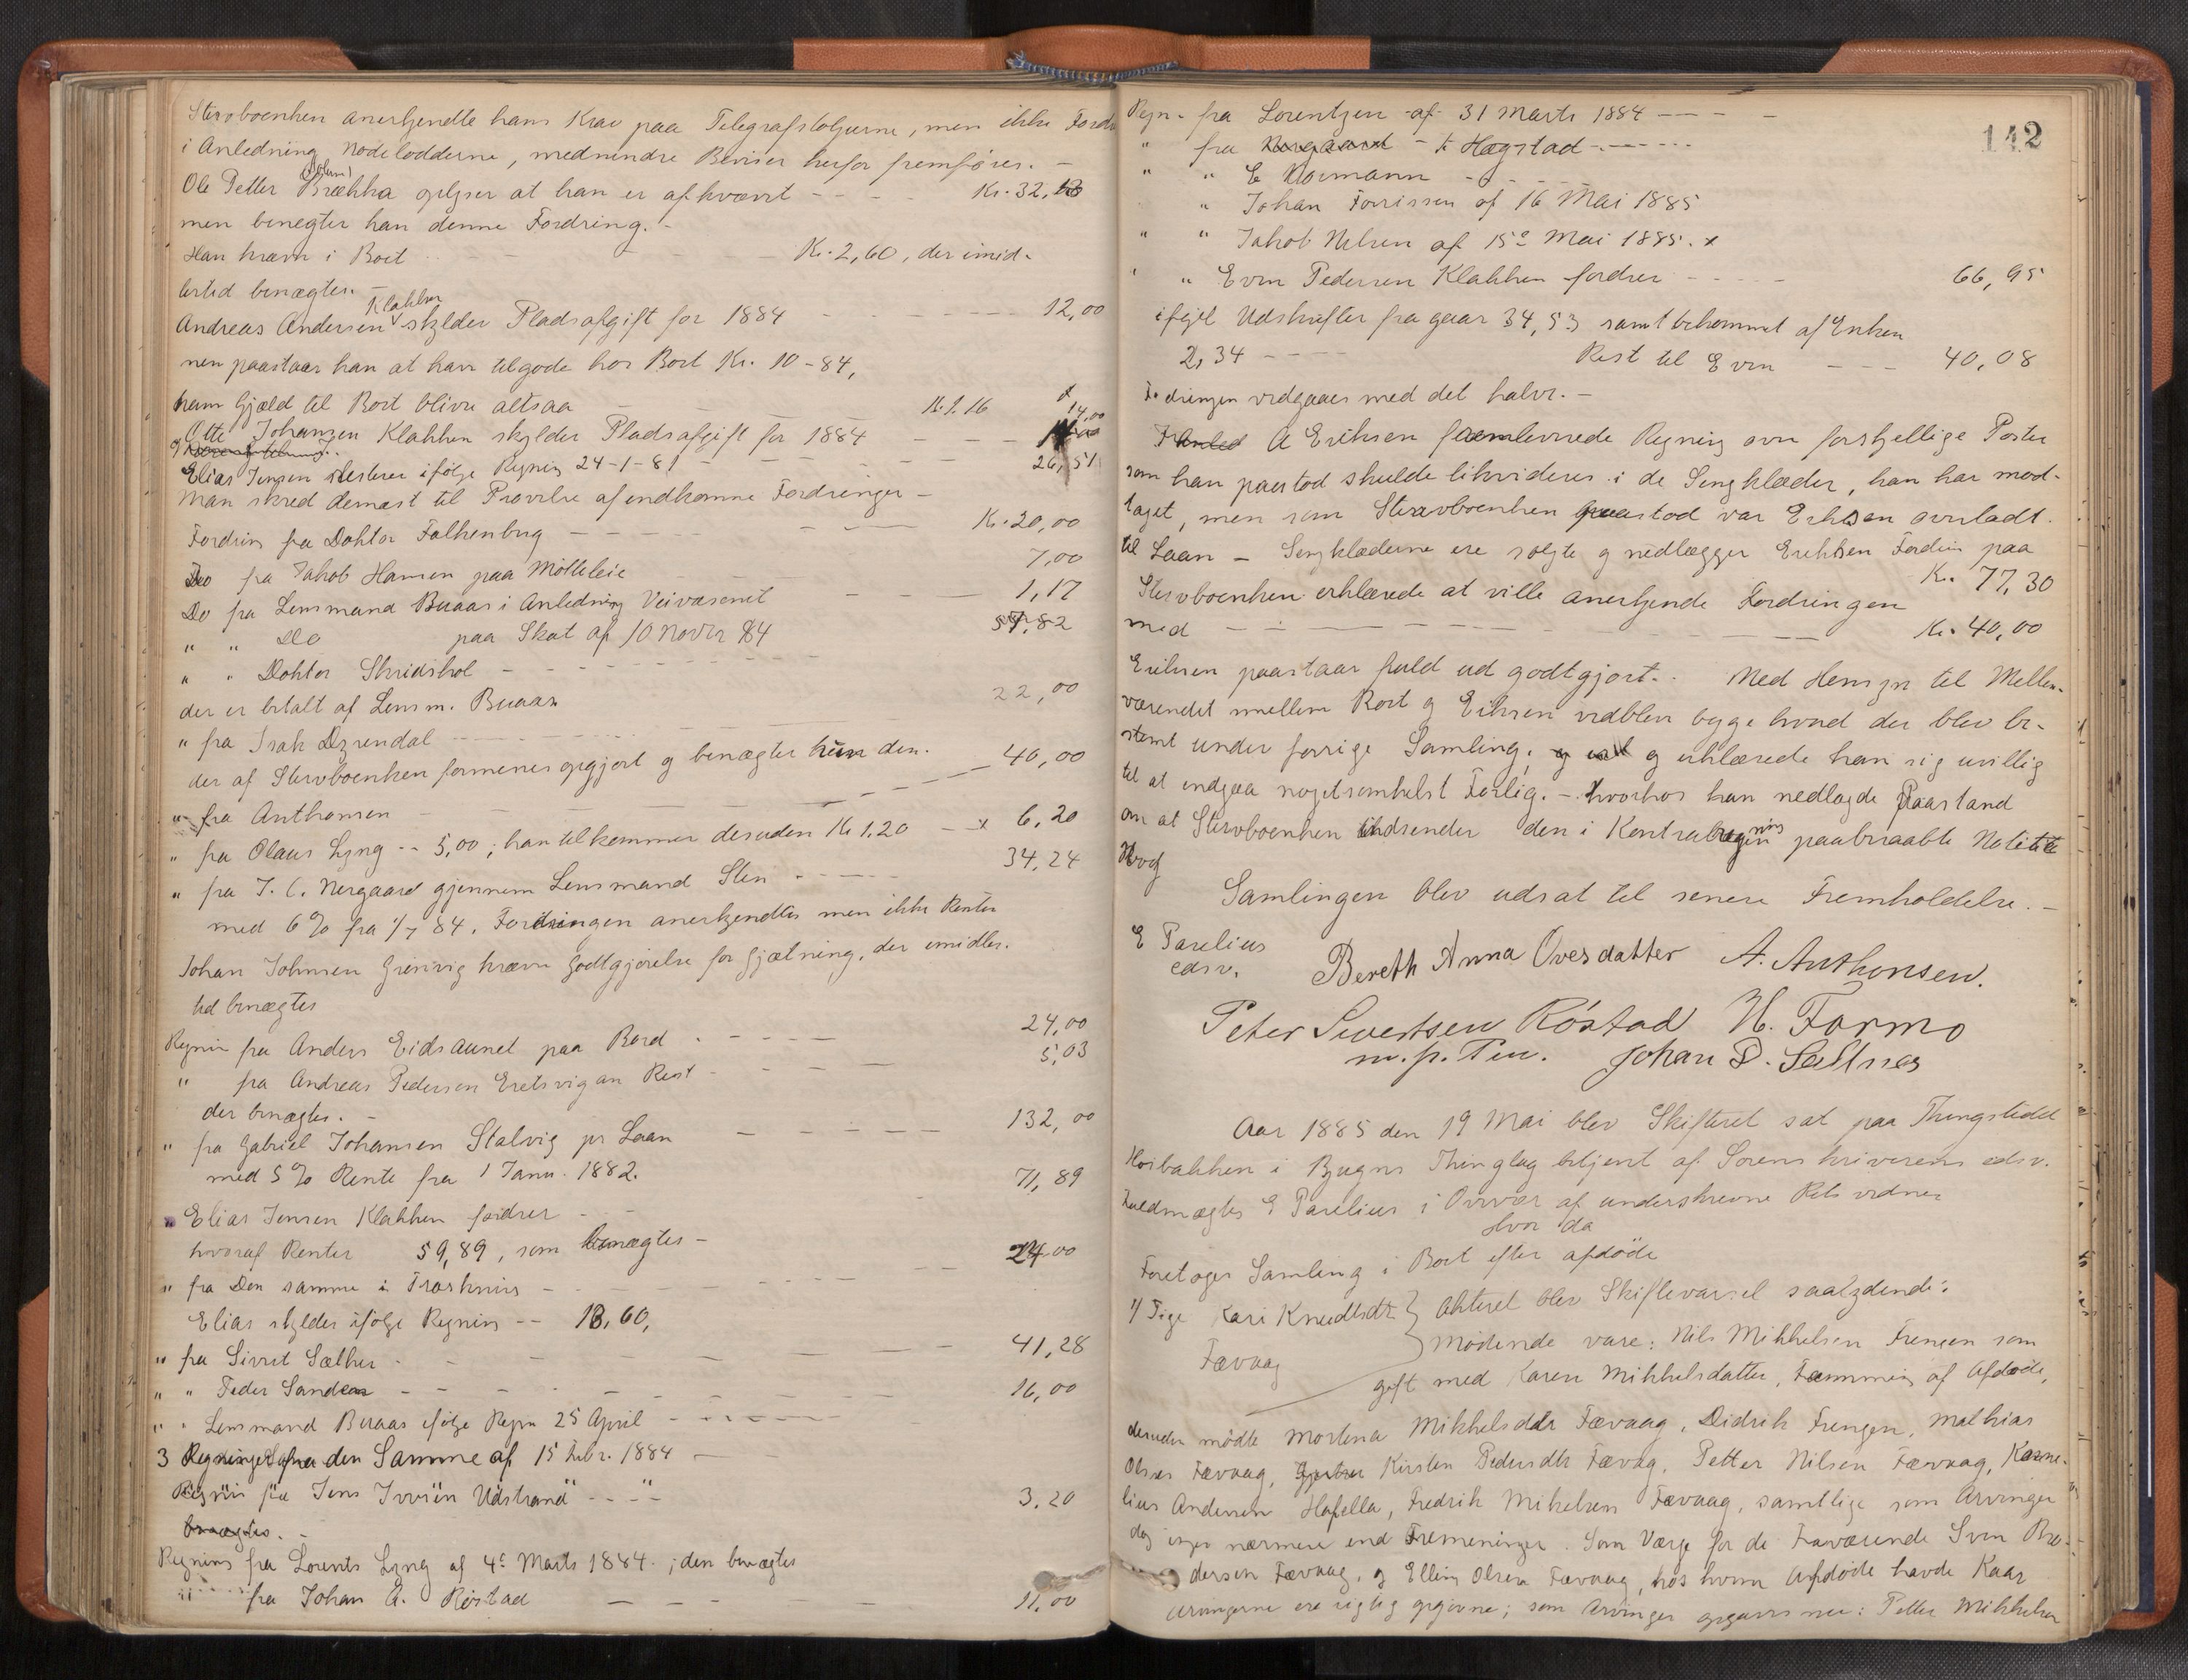 Stervboenken anerkjendte hans Krav paa Telegrafstolperne, men ikke Fordr
i Anledning Nodelodderne, medmindre Beviser herfor fremføres. -
Ole Petter Brækka oplyser at han er afkrævet - - - - Kr. 32,
men benegter han denne Fordring. -
Han kræver i Boet - - - Kr. 2,60, der imid-
lertid benægtes. -
Andreas Andersen Klakken skylder Pladsafgift for 1884 - - - - 12,00
men paastaar han at have tilgode hos Boet Kr. 10-84,
hans Gjæld til Boet bliver altsaa - - - Kr. 1.16
Otte Johansen Klakken skylder Pladsafgift for 1884 - - - 14,00
Elias Jensen resterer ifølge Regning 24-1-81 - - - 26,51
Man skred dernæst til Prøvelse af indkomne Fordringer -
Fordring fra Doktor Falkenberg - - - Kr. 20,00
Do fra Jakob Hansen paa Mölleleie 7,00
Do fra Lensmand Buaas i Anledning Veivæsenet - - - 1,17
" " Do paa Skat af 10 Novbr 84 57,82
" " Doktor Skridshol - - - -
der er betalt af Lensm. Buaas 22,00
" fra Isak Dyrendal - - -
der af Stervboenken formenes opgjort og benægter hun den. - - - 40,00
" fra Anthonsen - - -
" fra Olaus Lyng -- 5,00; han tilkommer desuden Kr 1,20 - x 6,20
" fra J. C. Nergaard gjennem Lensmand Sten - - - 34,24
med 6% fra 1/7 84. Fordringen anerkjendtes men ikke Renter
Johan Johnsen Grønvig kræver Godtgjørelse for Gjætning, der imidler-
tid benægtes
Regning fra Anders Eidsaunet paa Bord - - - 24,00
" fra Andreas Pedersen Eretsvigan Rest - - - 5,03
der benægtes. -
" fra Gabriel Johansen Stalvig pr Laan - - - 132,00
med 5% Rente fra 1 Janu. 1882.
" Elias Jensen Klakken fordrer - - 71,89
hvoraf Renter 59,89, som benægtes -
" fra Den samme i Træskning - - - 24,00
Elias skylder ifølge Regning -- 18,60,
" fra Sivert Sæther - - - 41,28
" " Peder Sandeas - - - 16,00
" " Lensmand Buaas ifølge Regn 25 April - - -
3 Regninger fra den Samme af 15 Febr. 1884 -
Regning fra Jens Iversen Udstrand - - - 3.20
benægtes. -
Regning fra Lorents Lyng af 4e Marts 1884. ; den benægtes
" fra Johan A. Röstad - - - 11,00
142
Regn. fra Lorentzen af 31 Marts 1884 - - - -
" fra Norgaard - K Hagstad - - - -
" " E Normann - - -
" Johan Forrissen af 16 Mai 1885
" " Jakob Nilsen af 15e Mai 1885. x
" " Even Pedersen Klakken fordrer - - - - 66,95
ifølge Udskrifter fragaar 34,53 samt bekommet af Enken
2,34 - - - - Rest til Even - - - 40,08
Fordringen vedgaaes med det halve. -
A Eriksen fremleverede Regning over forskjellige Poster
som han paastod skulde likvideres i de Sengklæder, han har mod-
taget, men som Stervboenken paastod var Eriksen overladt
til Laan - Sengklæderne ere solgte og nedlægger Eriksen Fordring paa
Kr. 77,30
Stervboenken erklærede at ville anerkjende Fordringen
med - - - - Kr. 40,00
Eriksen paastaar fuld ud godtgjort. - Med Hensyn til Mellem-
værendet mellem Boet og Eriksen vedblev begge hvad der blev be-
stemt under forrige Samling; og erklærede han sig uvillig
til at indgaa nogetsomhelst Forlig. - hvorhos han nedlagde Paastand
om at Stervboenken indsender den i Kontraregning paaberaabte Notitie
Hvorf
Samlingen blev udsat til senere Fremholdelse. -
E Parelius
edsv.
Bereth Anna Ovesdatter A. Anthonsen.
Peter Sivertsen Röstad H. Formo
m. p. Pen. Johan P. Saltnes
Aar 1885 den 19 Mai blev Skifteret sat paa Thingstedet
Høibakken i Bjugns Thinglag betjent af Sorenskriverens edsv.
Fuldmægtig E Parelius i Overvær af underskrevne Rets vidner
Hvor da
Foretoges Samling i Boet efter afdøde
1/ Pige Kari Knudtsdtr } Akteret blev Skiftevarsel saalydende:
Fævaag } Mødende vare: Nils Mikkelsen Frengen som
gift med Karen Mikkelsdatter, Fremming af Afdøde,
desuden mødte Mortena Mikkelsdatr Fævaag, Didrik Frengen, Mathias
Olsen Fævaag, Kirsten Pedersdtr Fævag, Petter Nilsen Fævaag, Korne-
lius Andersen Hafella, Fredrik Mikelsen Fævaag, samtlige som Arvinger
dog ingen nærmere end Fremeninger. Som Værge for de Fraværende Sven Pe-
dersen Fævaag, og Elling Olsen Fævaag, hos hvem Afdøde havde Kaar
Arvingerne ere rigtig opgivne; som Arvinger opgaves nu: Petter Mikkelsen